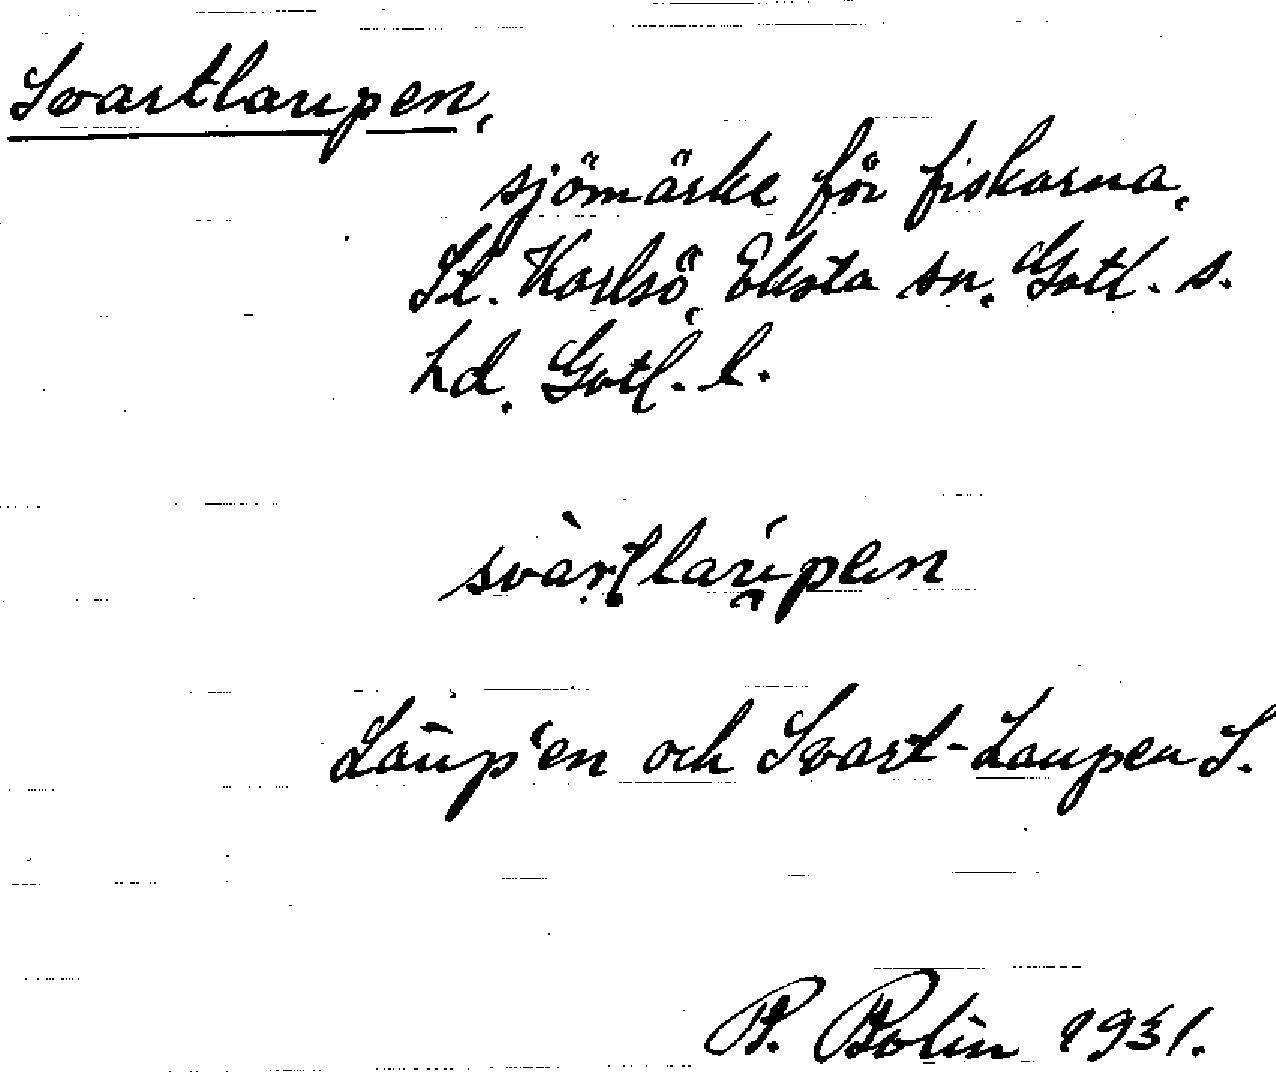 Svartlaupen,
sjömärke för fiskarna,
St. Karlsö, Eksta sn, Gotl. s.
hd, Gotl. l.
svàrtlaúpen
Laup'en och Svart-Laupen S.
P. Bolin 1931.